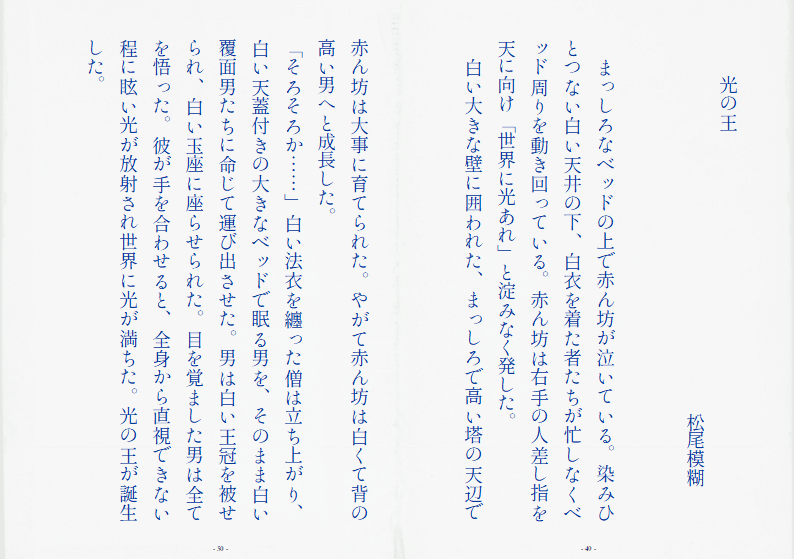 光の王
松尾模糊
まっしろなベッドの上で赤ん坊が泣いている。染みひ
とつない白い天井の下、白衣を着た者たちが忙しなくベ
ッド周りを動き回っている。赤ん坊は右手の人差し指を
天に向け「世界に光あれ」と淀みなく発した。
白い大きな壁に囲われた、まっしろで高い塔の天辺で
- 49 -
赤ん坊は大事に育てられた。やがて赤ん坊は白くて背の
高い男へと成長した。
「そろそろか……」白い法衣を纏った僧は立ち上がり、
白い天蓋付きの大きなベッドで眠る男を、そのまま白い
覆面男たちに命じて運び出させた。男は白い王冠を被せ
られ、白い玉座に座らせられた。目を覚ました男は全て
を悟った。彼が手を合わせると、全身から直視できない
程に眩い光が放射され世界に光が満ちた。光の王が誕生
した。
- 50 -